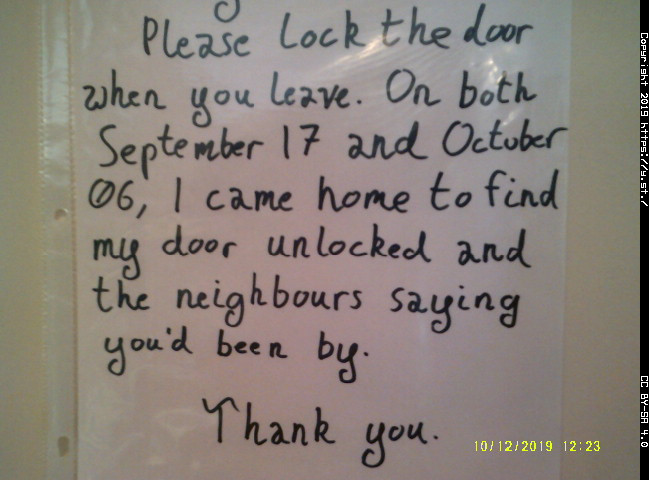 Please lock the door
when you leave. On both
September 17 and October
06, I came home to find
my door unlocked and
the neighbours saying
you'd been by.
Thank you.
10/12/2019 12:23
Copyright 2019 https://y.st./
CC BY-SA 4.0